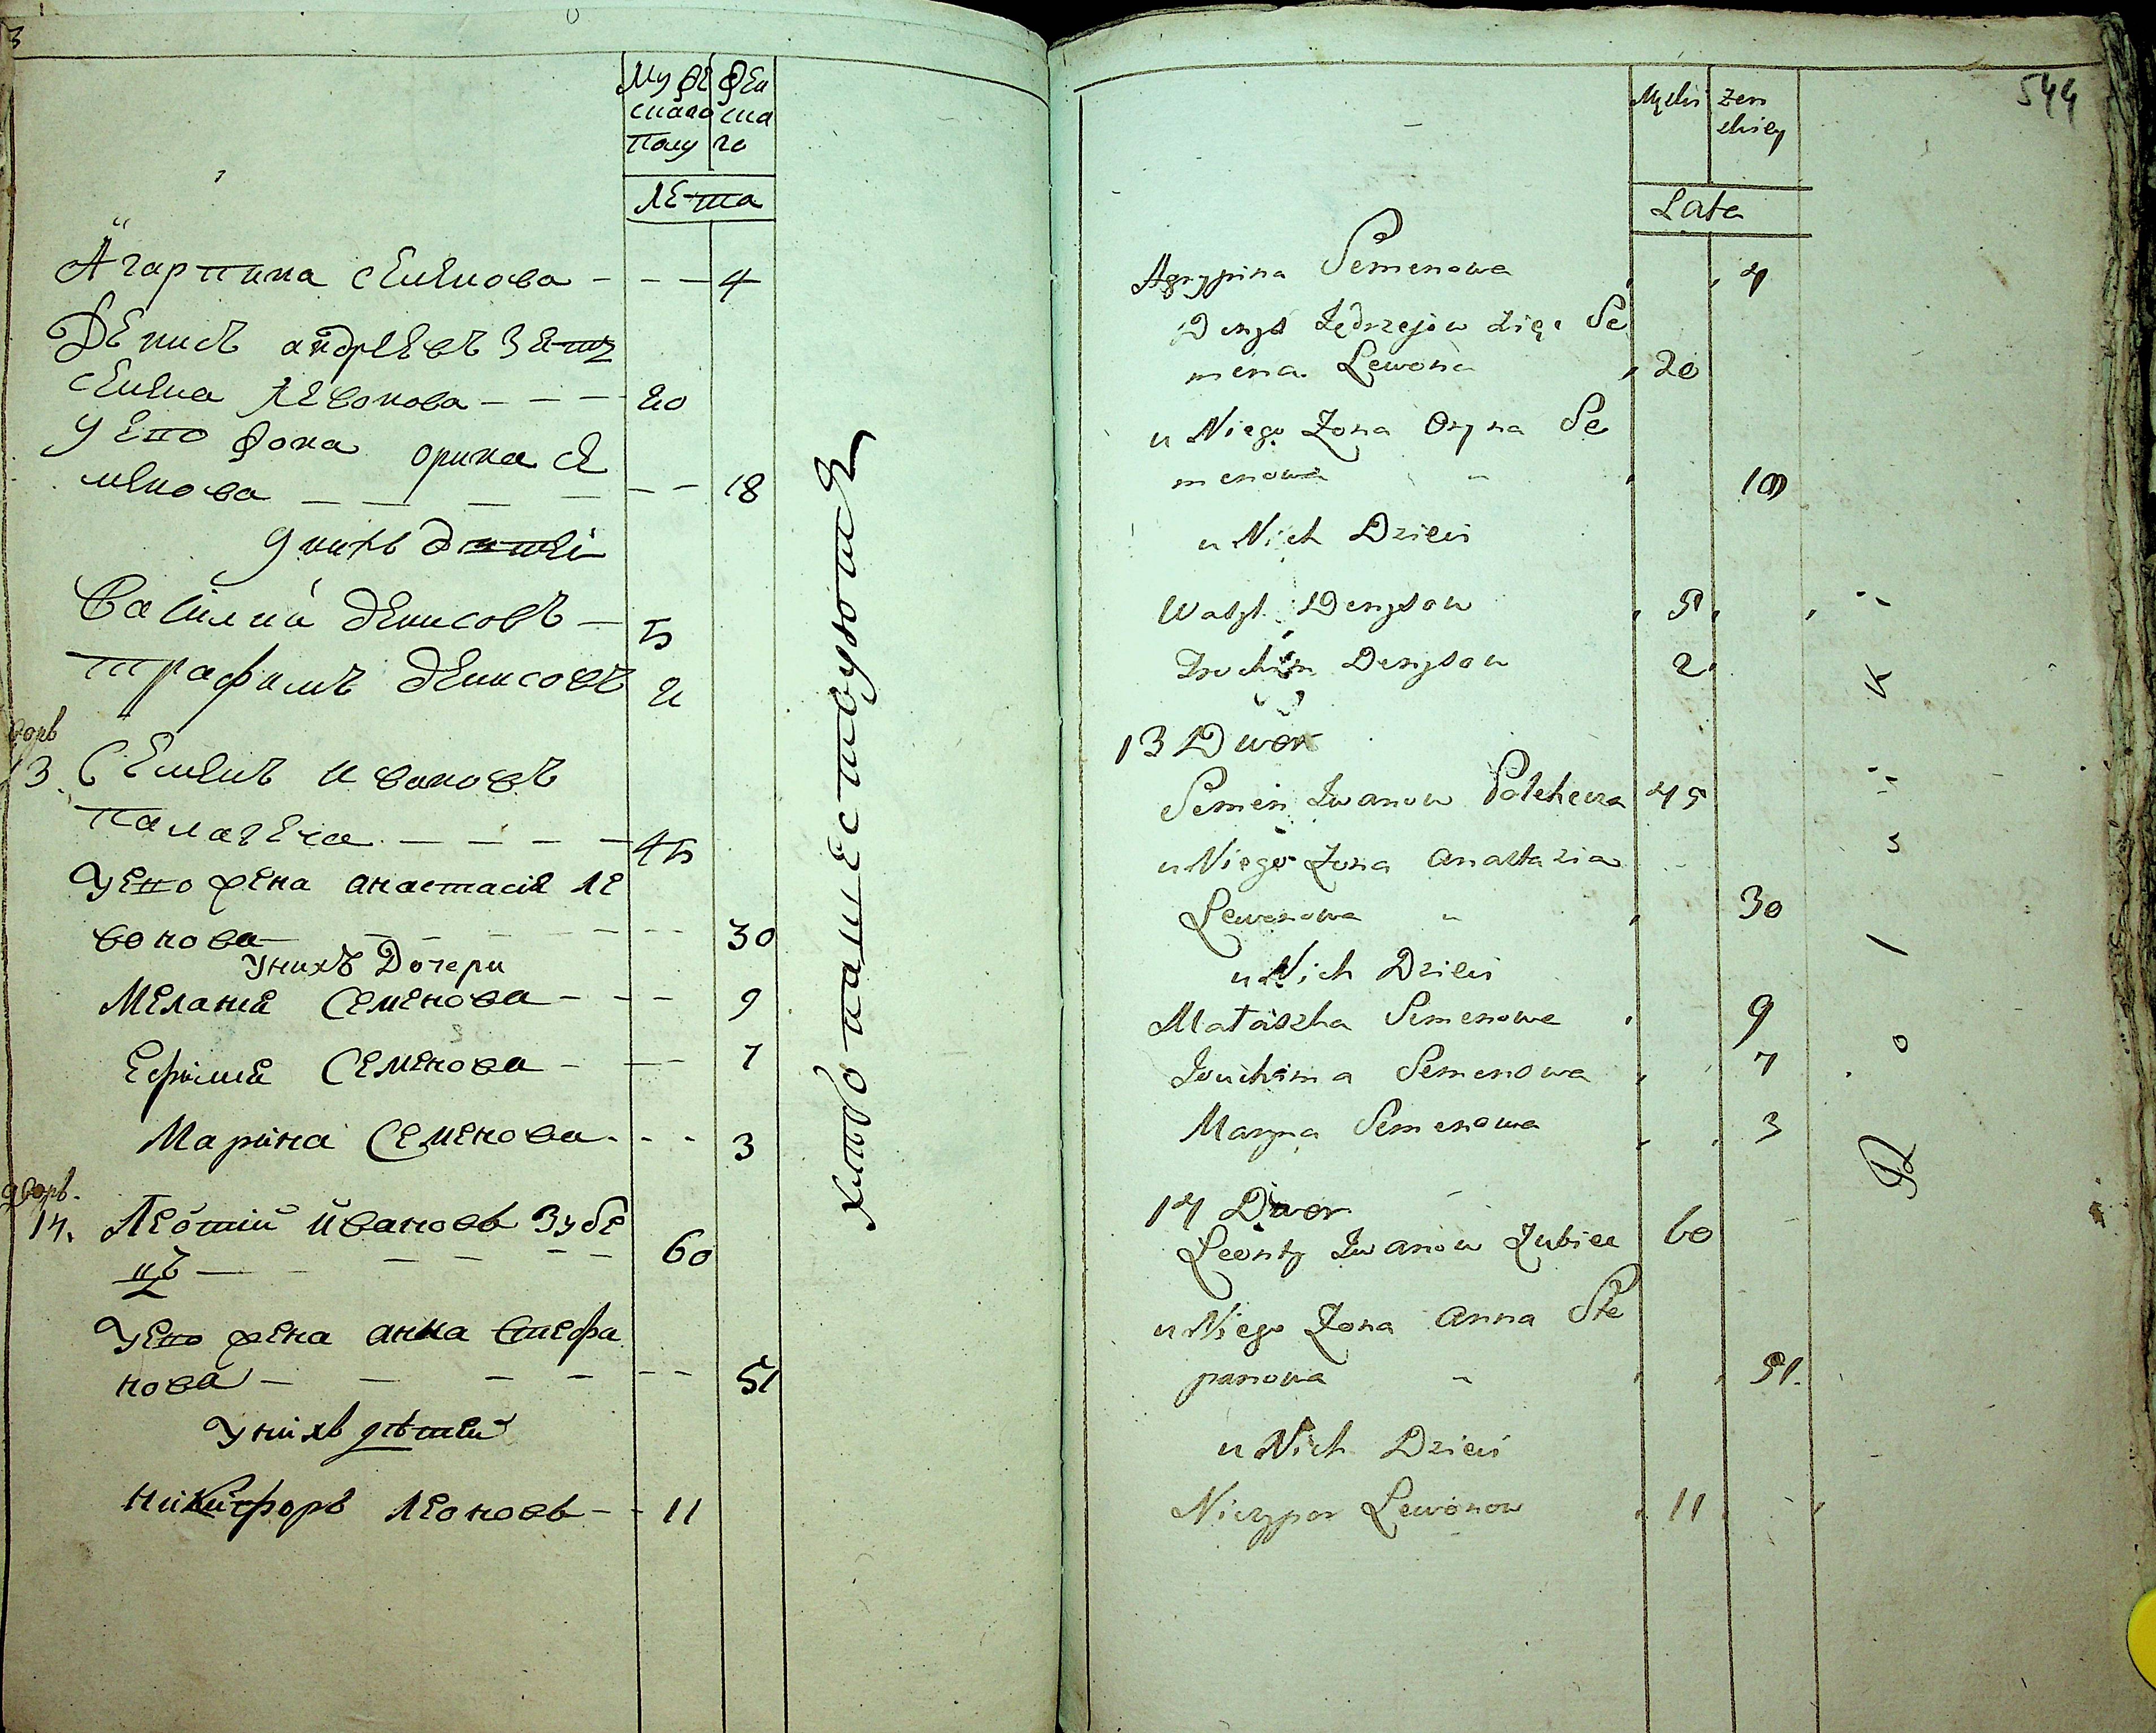 Муже Жен
скаго ска
полу го
лета
Агарпина семенова - - - 4
Денисъ андреевъ зеть
семена левонова - - - 20
у его жона орина се
менова - - - - - - 18
у нихъ детеи
Василии денисовъ - 5
трафимъ денисовъ 2
дворъ
13. Семенъ ивановъ
палагеча - - - - 45
у его жена анастасия ле
вонова - - - - - - 30
у нихъ дочери
Мелания семенова - - - 9
Ефимия семенова - - 7
Марина семенова - - - 3
дворъ.
14. Леотий ивановъ Зубе
цъ - - - - - 60
у его жена анна стефа
нова - - - - - - 51
у нихъ детеи
никифоръ леоновъ - - 11
хлебопашествуютъ
544
Męski żen
skiey
Lata
Agrypina Semenowa 4
Denys Jędrzejow zięć Se
mena Lewona 20
u Niego Zona Oryna Se
menowa 18
u Nich Dzieci
Wasyl Denysow 5
Trochim Denysow 2
13 Dwor
Semen Iwanow Polehecza 45
u Niego Zona Anastazia
Lewonowa 30
u Nich Dzieci
Mataszka Semenowa 9
Jouchima Semenowa 7
Maryna Semenowa 3
14 Dwor
Leonty Iwanow Zubiec 60
u Niego Zona Anna Ste
panowa 51.
u Nich Dzieci
Niczypor Lewonow 11